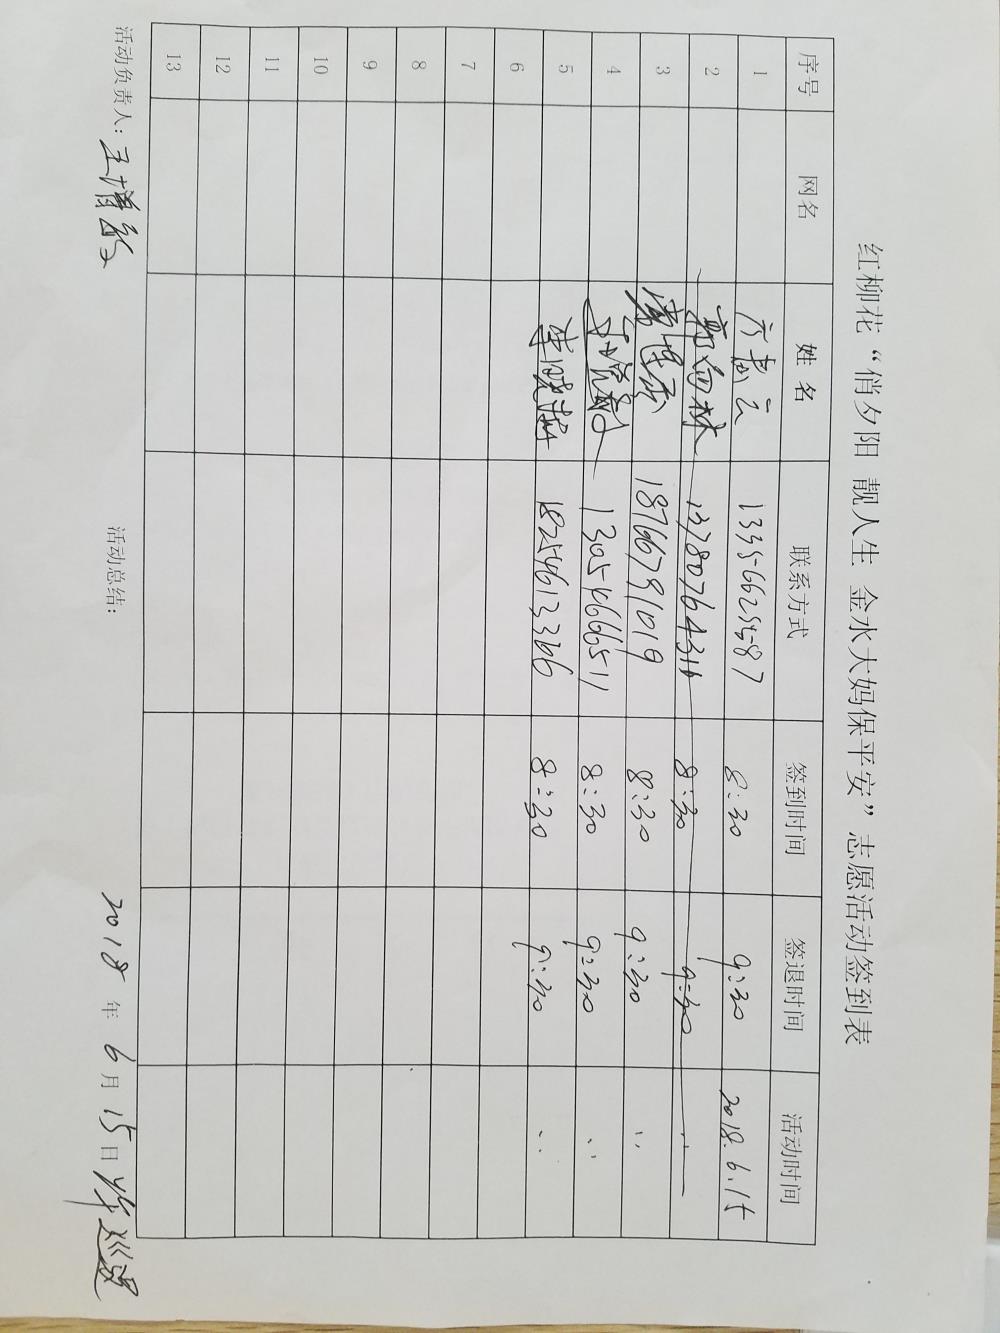 红柳花“俏夕阳 靓人生 金水大妈保平安”志愿活动签到表
序号 网名 姓名 联系方式 签到时间 签退时间 活动时间
1 8:30 9:30 2018.6.15
2 郭句林 13780764316 8:30 9:30 ∵
3 18766791019 8:30 9:30 ∵
4 13054666511 8:30 9:30 ∵
5 李晓梅 18254613366 8:30 9:30 ∵
6
7
8
9
10
11
12
13
活动负责人: 王增敏 活动总结: 2018 年 6 月 15 日